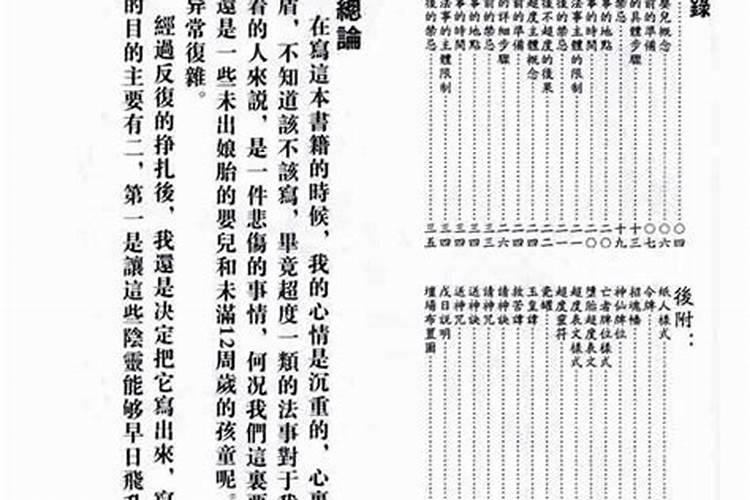 錄
〇四
嬰兒概念 〇六
前的準備 〇七
的具體步驟 十三
禁忌 十九
事的地點 二〇
事的時間 二〇
法事主體的限制 二一
後的禁忌 二一
後不超度的後果 二二
超度主體概念 二四
前的準備 二四
的詳細步驟 二六
前的禁忌 三三
事的地點 三四
事的時間 三四
法事的主體限制 三四
後的禁忌 三五
後附：
紙人樣式
令牌
招魂幡
神仙牌位
亡者牌位樣式
墮胎超度表文
超度表文樣式
超度靈符
瓷罐
玉皇諱
救苦諱
請神訣
請神咒
送神訣
送神咒
戊日説明
壇場布置圖
總論
在寫這本書籍的時候，我的心情是沉重的，心裏
盾，不知道該不該寫，畢竟超度一類的法事對于我
看的人來説，是一件悲傷的事情，何况我們這裏要
還是一些未出娘胎的嬰兒和未滿12周歲的孩童呢。
异常復雜。
經過反復的掙扎後，我還是決定把它寫出來，寫
的目的主要有二，第一是讓這些陰靈能够早日飛升